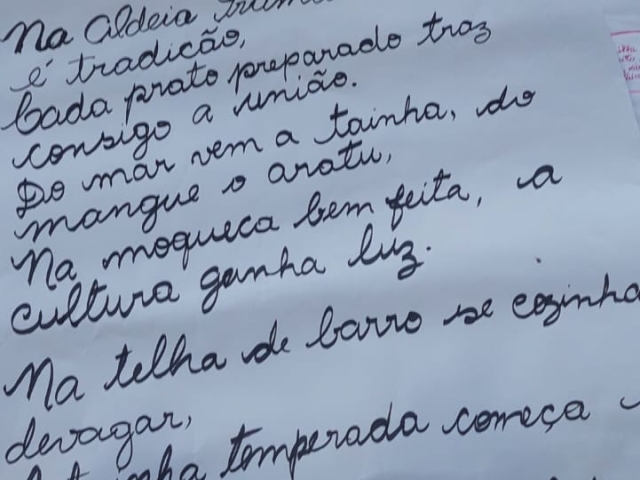 Na Aldeia
é tradicão,
Cada prato preparado traz
consigo a união.
Do mar vem a tainha, do
mangue o aratu,
Na moqueca bem feita, a
cultura ganha luz.
Na telha de barro se cozinha
devagar,
temperada começa